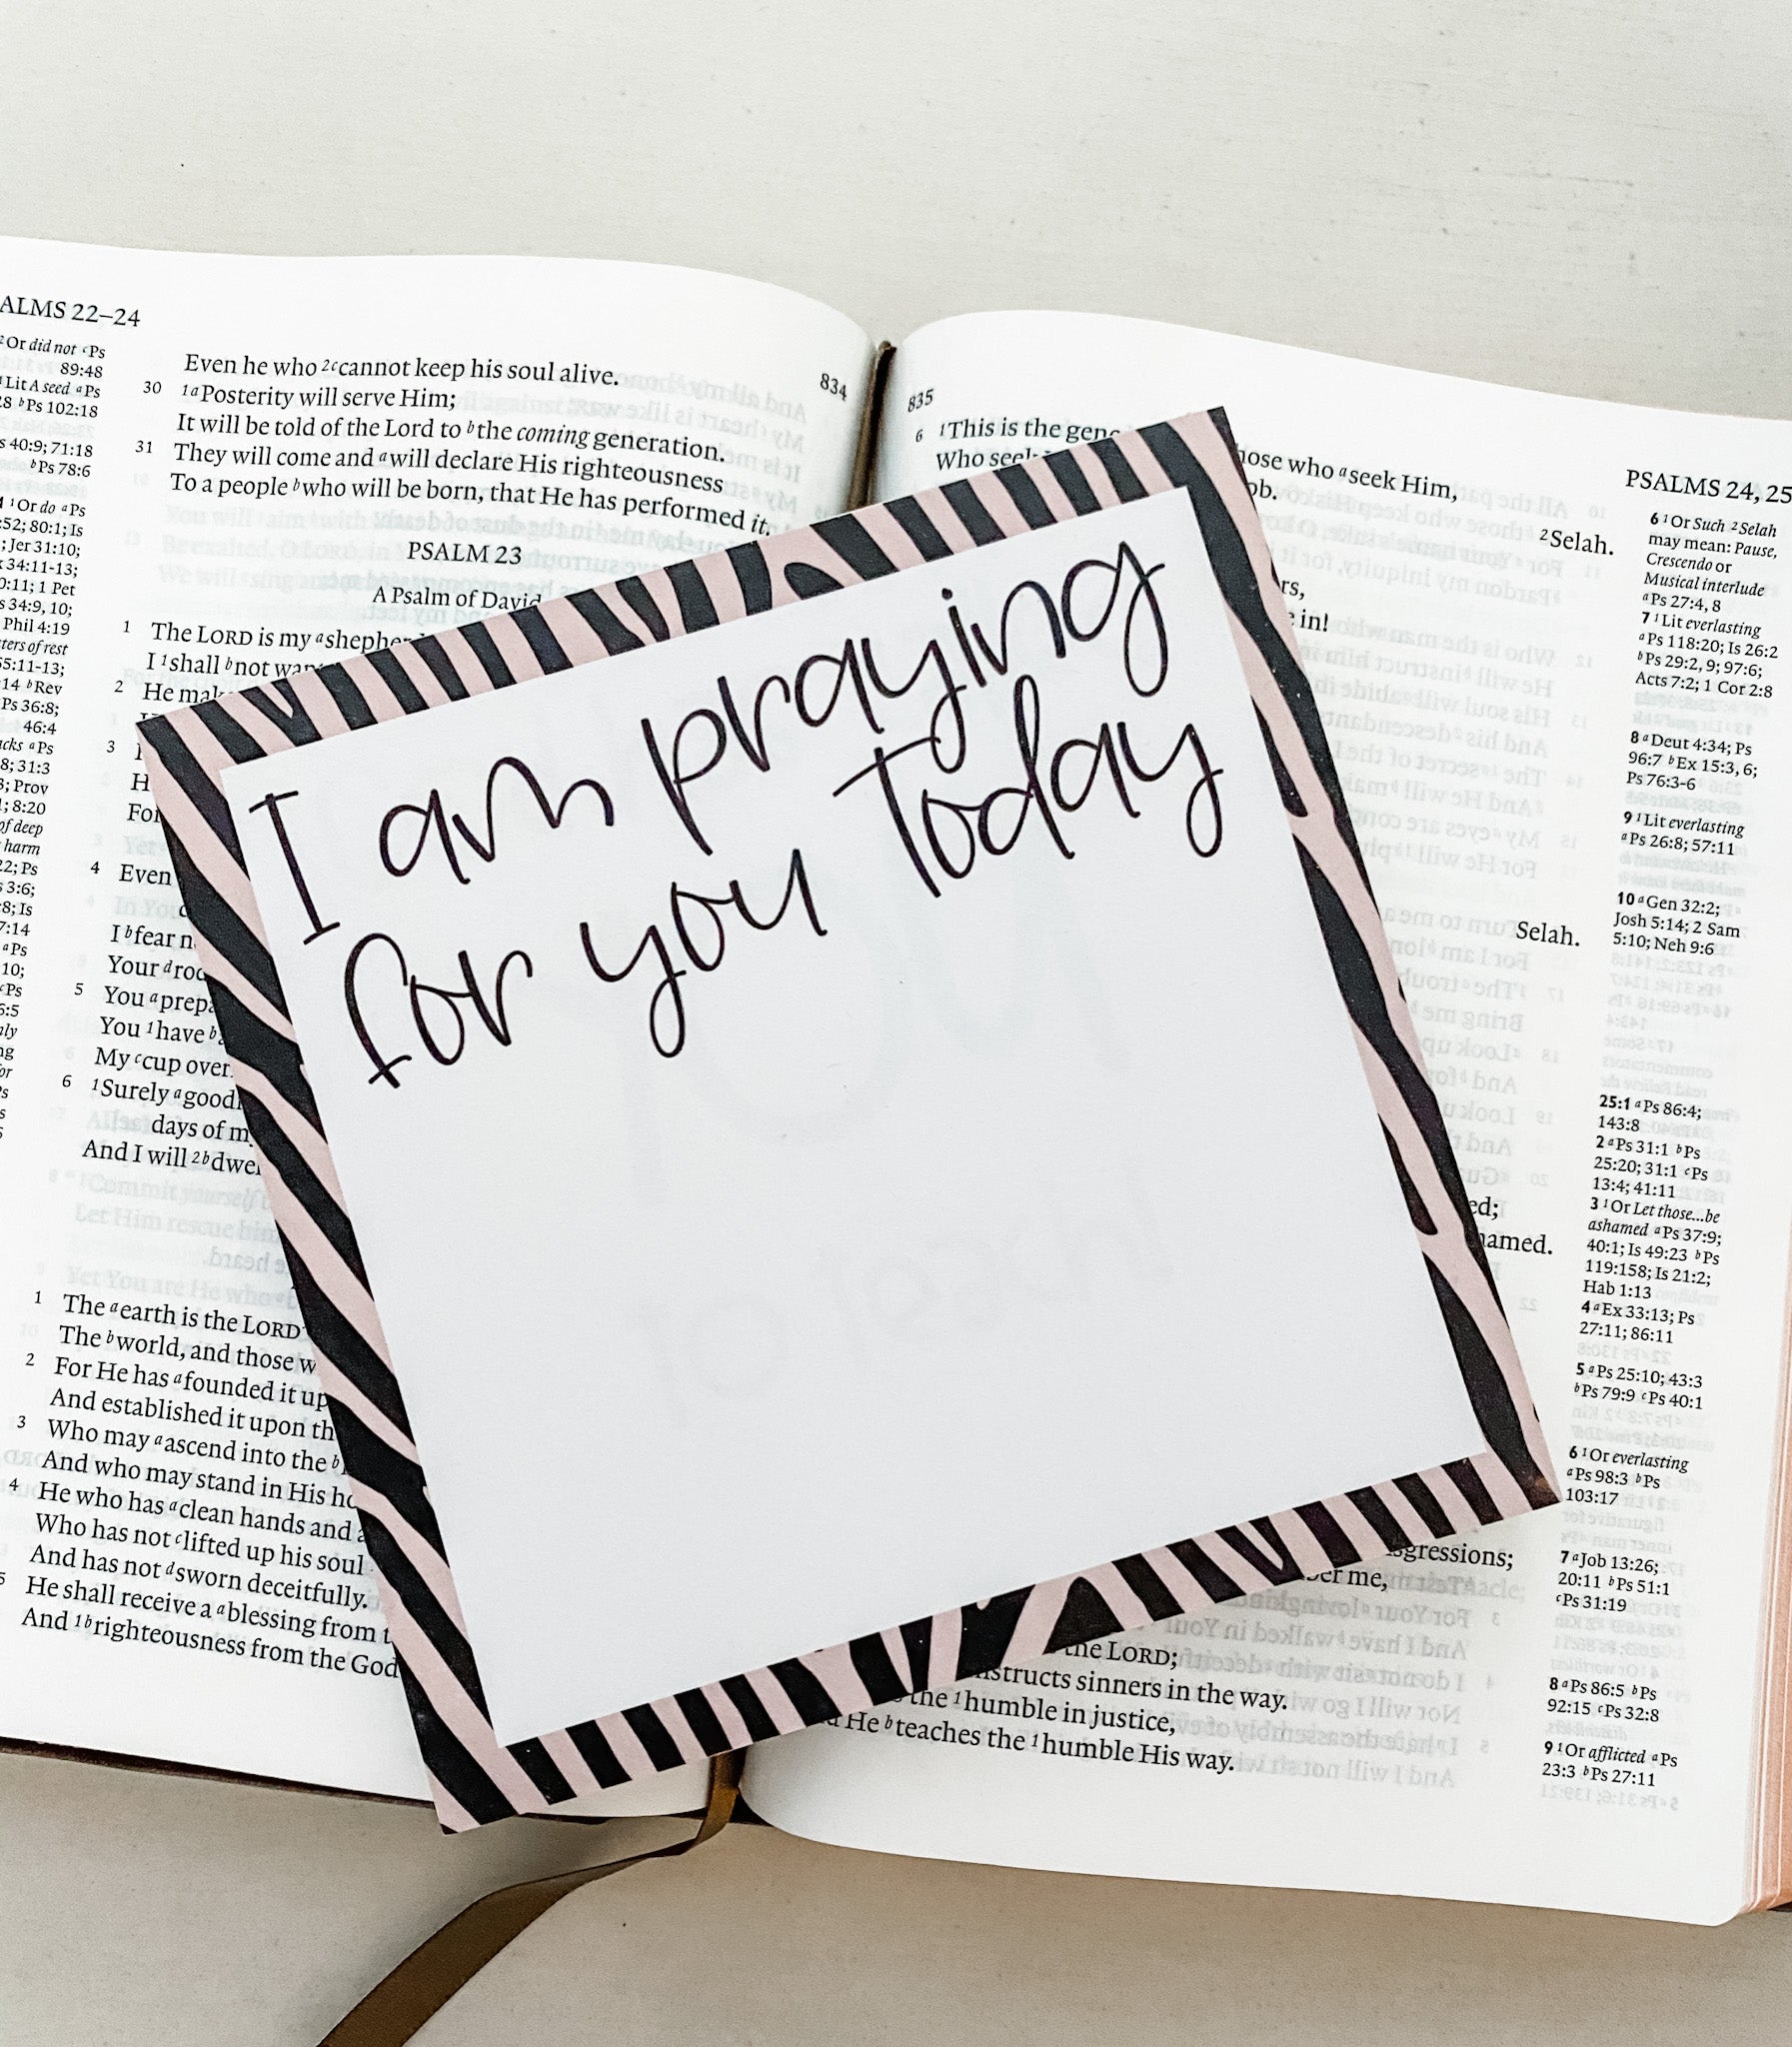 I am praying
for you today
PSALMS 22–24
89:48
28 bPs 102:18
s 40:9; 71:18
bPs 78:6
46:4
834
Even he who 2ccannot keep his soul alive.
30 1aPosterity will serve Him;
It will be told of the Lord to bthe coming generation.
31 They will come and awill declare His righteousness
To a people bwho will be born, that He has performed it.
PSALM 23
A Psalm of David
1 The LORD is my ashepher
I 1shall bnot wan
2 He mak
3
4 Even
I bfear n
Your drod
5 You aprepa
You 1have b
My ccup over
6 1Surely agood
days of m
And I will 2bdwel
1 The aearth is the LORD
The bworld, and those w
2 For He has afounded it up
And established it upon th
3 Who may aascend into the b
And who may stand in His ho
4 He who has aclean hands and a
Who has not clifted up his soul
And has not dsworn deceitfully.
5 He shall receive a ablessing from t
And 1brighteousness from the God
835
6 1This is the gene hose who aseek Him,
Who seek ob.
2Selah.
rs,
e in!
Selah.
ed;
hamed.
sgressions;
ber me,
the LORD;
nstructs sinners in the way.
the 1humble in justice,
He bteaches the 1humble His way.
PSALMS 24, 25
6 1Or Such 2Selah
may mean: Pause,
Crescendo or
Musical interlude
aPs 27:4, 8
7 1Lit everlasting
aPs 118:20; Is 26:2
bPs 29:2, 9; 97:6;
Acts 7:2; 1 Cor 2:8
8 aDeut 4:34; Ps
96:7 bEx 15:3, 6;
Ps 76:3-6
9 1Lit everlasting
aPs 26:8; 57:11
10 aGen 32:2;
Josh 5:14; 2 Sam
5:10; Neh 9:6
25:1 aPs 86:4;
143:8
2 aPs 31:1 bPs
25:20; 31:1 cPs
13:4; 41:11
3 1Or Let those...be
ashamed aPs 37:9;
40:1; Is 49:23 bPs
119:158; Is 21:2;
Hab 1:13
4 aEx 33:13; Ps
27:11; 86:11
5 aPs 25:10; 43:3
bPs 79:9 cPs 40:1
6 1Or everlasting
aPs 98:3 bPs
103:17
7 aJob 13:26;
20:11 bPs 51:1
cPs 31:19
8 aPs 86:5 bPs
92:15 cPs 32:8
9 1Or afflicted aPs
23:3 bPs 27:11